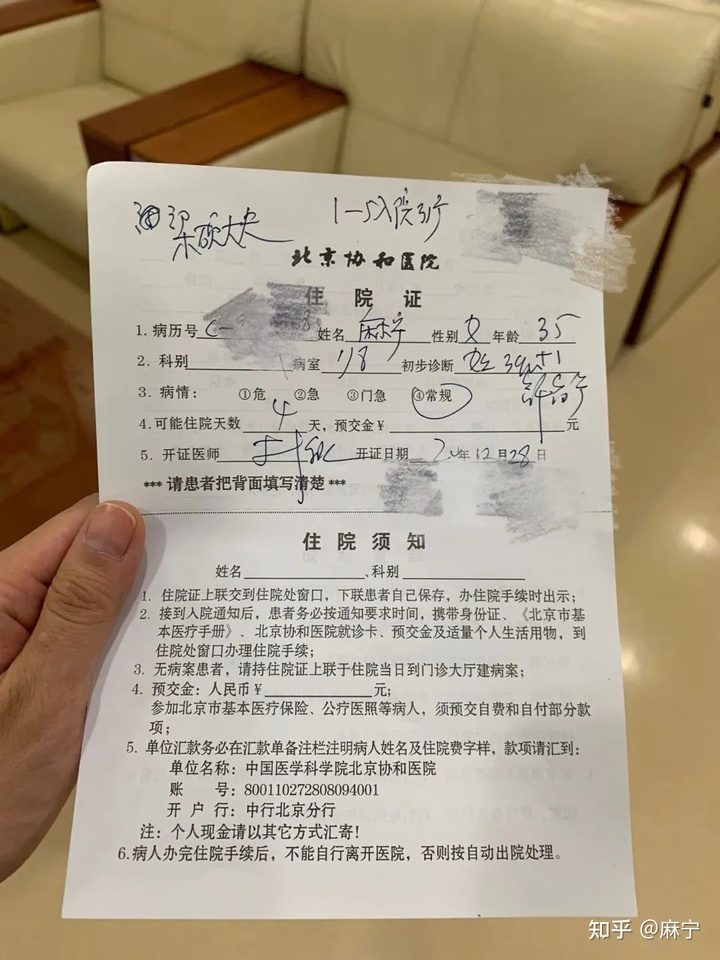 1-5入院
北京协和医院
住 院 证
1. 病历号 姓名 麻宁 性别 女 年龄 35
2. 科别 病室 初步诊断
3. 病情: ①危 ②急 ③门急 ④常规
4. 可能住院天数 4 天, 预交金¥ 元
5. 开证医师 开证日期 年 12 月 28 日
*** 请患者把背面填写清楚 ***
住 院 须 知
姓名 、科别
1. 住院证上联交到住院处窗口, 下联患者自己保存, 办住院手续时出示;
2. 接到入院通知后, 患者务必按通知要求时间, 携带身份证、《北京市基
本医疗手册》、北京协和医院就诊卡、预交金及适量个人生活用物, 到
住院处窗口办理住院手续;
3. 无病案患者, 请持住院证上联于住院当日到门诊大厅建病案;
4. 预交金: 人民币¥ 元;
参加北京市基本医疗保险、公疗医照等病人, 须预交自费和自付部分款
项;
5. 单位汇款务必在汇款单备注栏注明病人姓名及住院费字样, 款项请汇到:
单位名称: 中国医学科学院北京协和医院
账 号: 800110272808094001
开 户 行: 中行北京分行
注: 个人现金请以其它方式汇寄!
6.病人办完住院手续后, 不能自行离开医院, 否则按自动出院处理。
知乎 @麻宁